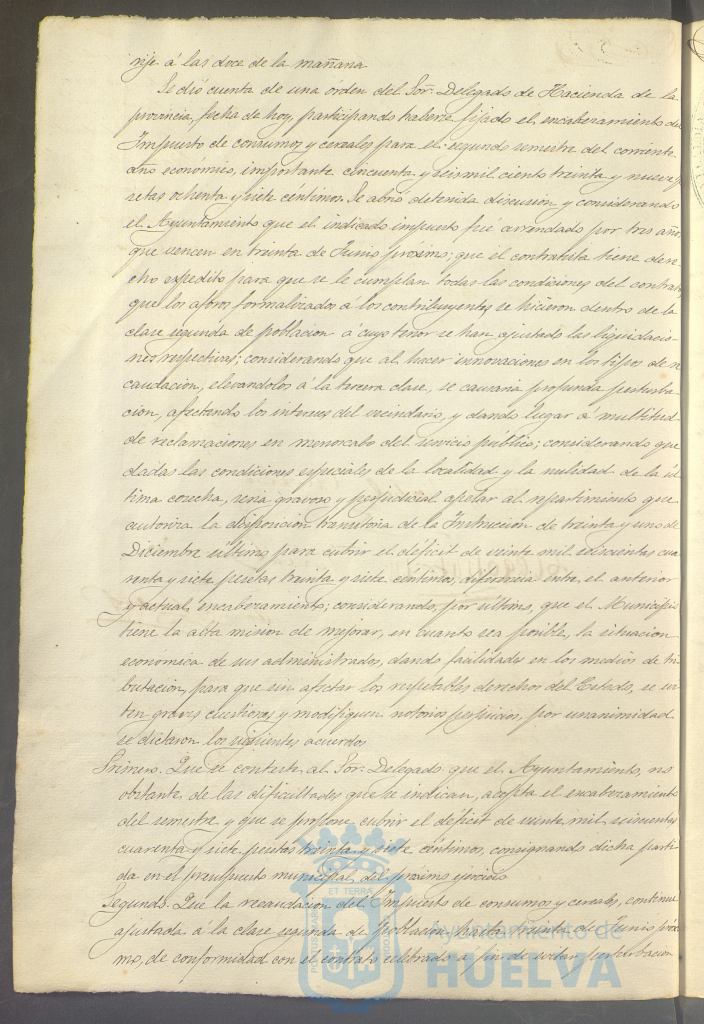 rife á las doce de la mañana
Se dió cuenta de una órden del Sor. Delegado de Hacienda de la
provincia, fecha de hoy, participando haberse fijado el encabezamiento del
Impuesto de consumos y cereales para el segundo semestre del corriente
año económico, importante cincuenta y seis mil ciento treinta y nueve pe
setas ochenta y siete céntimos. Se abrió detenida discusion y considerando
el Ayuntamiento que el indicado impuesto fué arrendado por tres años
que vencen en treinta de Junio próximo; que el contratista tiene dere-
cho expedito para que se le cumplan todas las condiciones del contrato
que los aforos formalizados á los contribuyentes se hicieron dentro de la
clase segunda de poblacion á cuyo tenor se han ajustado las liquidacio-
nes respectivas; considerando que al hacer innovaciones en los tipos de re
caudacion, elevandolos á la tercera clase, se causaria profunda perturba-
cion, afectando los intereses del vecindario, y dando lugar á multitud
de reclamaciones en menoscabo del servicio público; considerando que
dadas las condiciones especiales de la localidad y la nulidad de la úl-
tima cosecha, seria gravoso y perjudicial apelar al repartimiento que
autoriza la disposicion transitoria de la Instruccion de treinta y uno de
Diciembre último para cubrir el déficit de veinte mil seiscientas cua
renta y siete pesetas treinta y siete céntimos, diferencia entre el anterior
y actual encabezamiento; considerando, por último, que el Municipio
tiene la alta mision de mejorar, en cuanto sea posible, la situacion
económica de sus administrados, dando facilidades en los medios de tri
butacion, para que sin afectar los respetables derechos del Estado, se evi
ten graves cuestiones y modifiquen notorios perjuicios, por unanimidad
se dictaron los siguientes acuerdos
Primero. Que se conteste al Sor. Delegado que el Ayuntamiento, no
obstante de las dificultades que se indican, acepta el encabezamiento
del semestre y que se propone cubrir el déficit de veinte mil seiscientas
cuarenta y siete pesetas treinta y siete céntimos, consignando dicha parti-
da en el presupuesto municipal del próximo ejercicio
Segundo. Que la recaudacion del Impuesto de consumos y cereales, continue
ajustada á la clase segunda de poblacion hasta treinta de Junio próxi
mo, de conformidad con el contrato celebrado á fin de evitar perturbacion
ET TERRAE
Ayuntamiento de
HUELVA